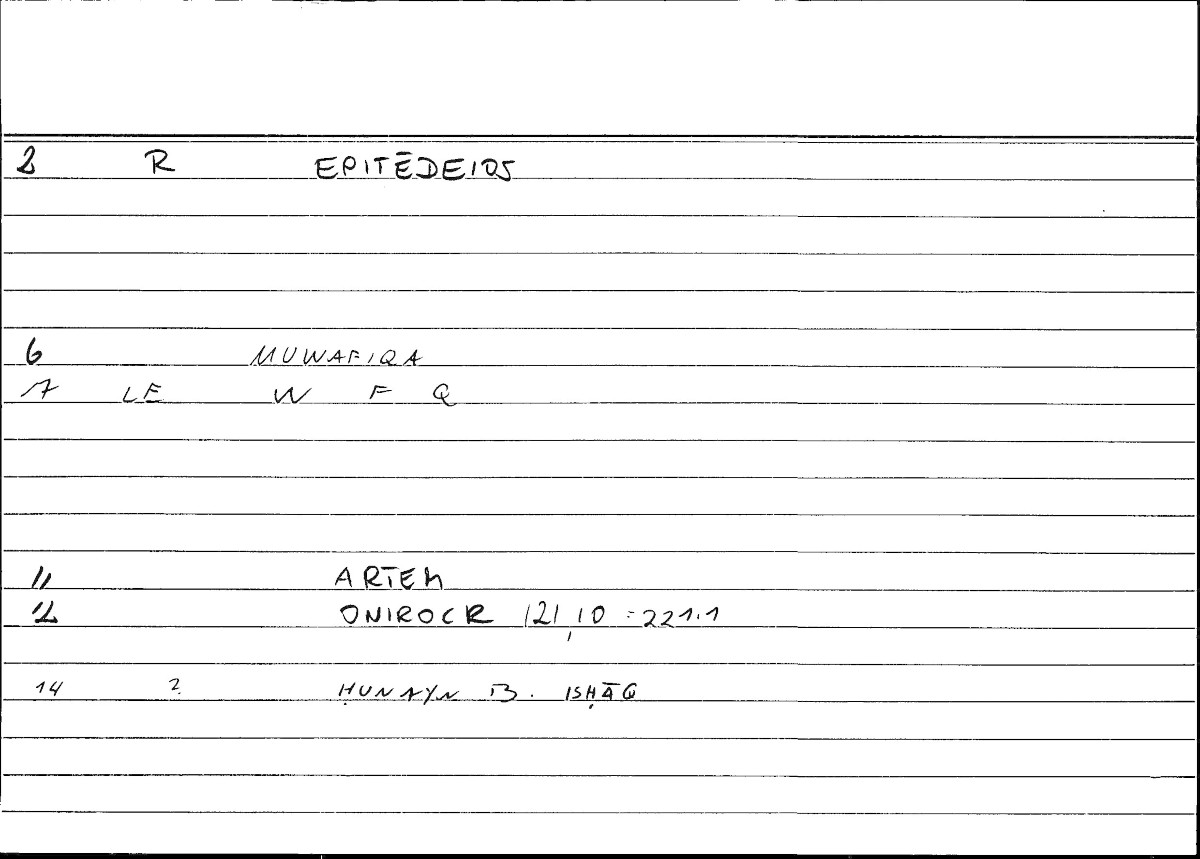 2 R EPITĒDEIOS
6 MUWAFIQA
7 LE W F Q
11 ARTEM
12 ONIROCR 121,10 = 221.1
14 2 ḤUNAYN B. ISḤĀQ